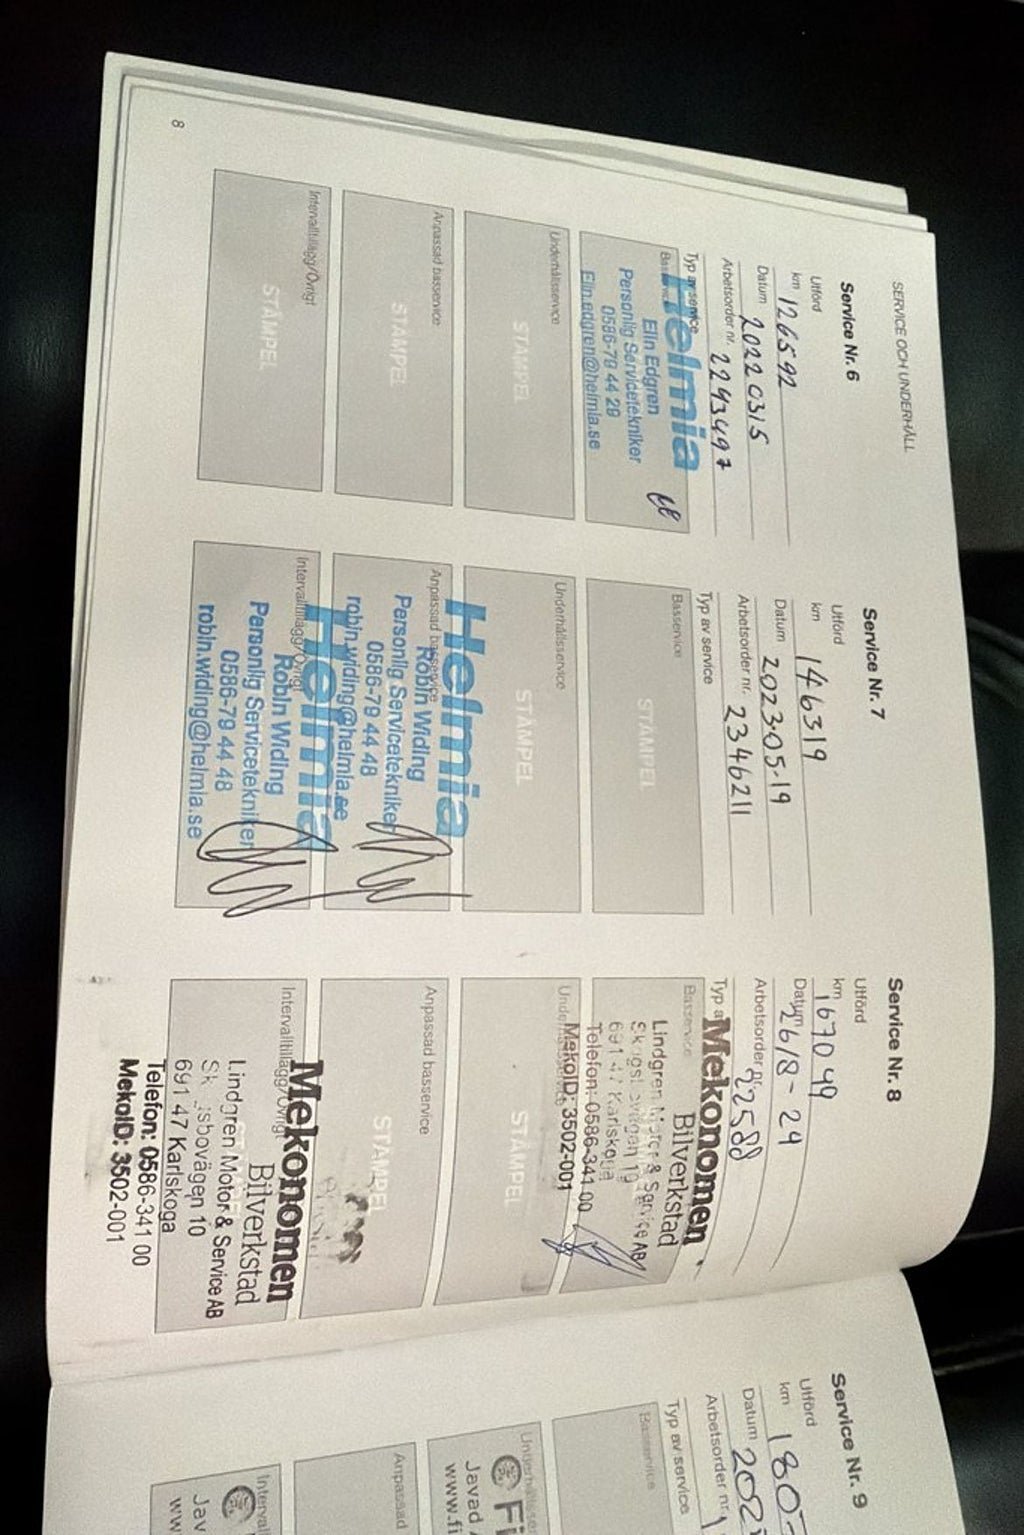 SERVICE OCH UNDERHÅLL
Service Nr. 6
Utförd
km 126592
Datum 20220315
Arbetsorder nr. 2293497
Typ av service
Helmia
Elin Edgren
Personlig Servicetekniker
0586-79 44 29
Elin.edgren@helmia.se
Underhållsservice
STÄMPEL
Anpassad basservice
STÄMPEL
Intervalltillägg/Övrigt
STÄMPEL
8
Service Nr. 7
Utförd
km 146319
Datum 2023-05-19
Arbetsorder nr. 2346211
Typ av service
Basservice
STÄMPEL
Underhållsservice
STÄMPEL
Anpassad basservice
Helmia
Robin Widing
Personlig Servicetekniker
0586-79 44 48
robin.widing@helmia.se
Intervalltillägg/Övrigt
Helmia
Robin Widing
Personlig Servicetekniker
0586-79 44 48
robin.widing@helmia.se
Service Nr. 8
Utförd
km 167049
Datum 26/8-24
Arbetsorder nr. 22588
Typ a
Basservice
Mekonomen
Bilverkstad
Lindgren Motor & Service AB
691 47 Karlskoga
Telefon: 0586-341 00
MekoID: 3502-001
STÄMPEL
Anpassad basservice
STÄMPEL
Intervalltillägg/Övrigt
Mekonomen
Bilverkstad
Lindgren Motor & Service AB
10
691 47 Karlskoga
Telefon: 0586-341 00
MekoID: 3502-001
Service Nr. 9
Utförd
km 180
Datum 202
Arbetsorder nr.
Typ av service
Basservice
Fi
Javad
www.fi
Anpassad
Interval
Jav
ww